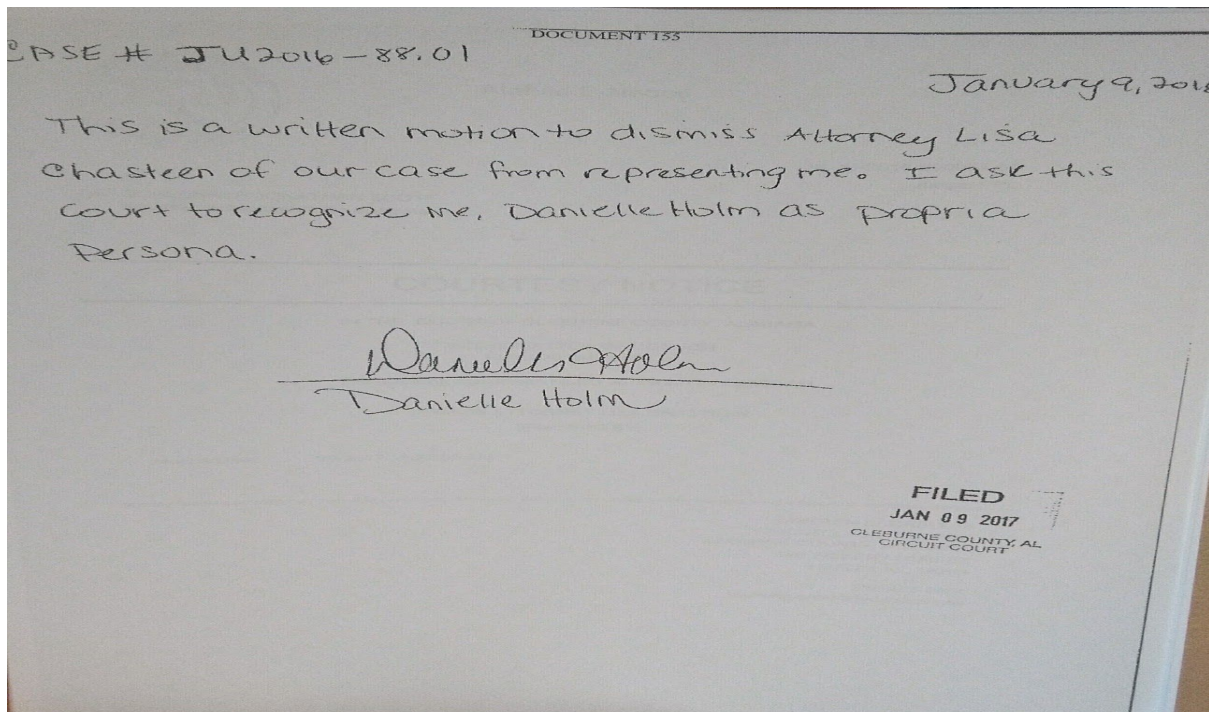 DOCUMENT 155
CASE # JU2016-88.01
January 9, 2018
This is a written motion to dismiss Attorney Lisa
Chasteen of our case from representing me. I ask this
Court to recognize me, Danielle Holm as propria
Persona.
Danielle Holm
Danielle Holm
FILED
JAN 09 2017
CLEBURNE COUNTY, AL
CIRCUIT COURT
COURTESY NOTICE